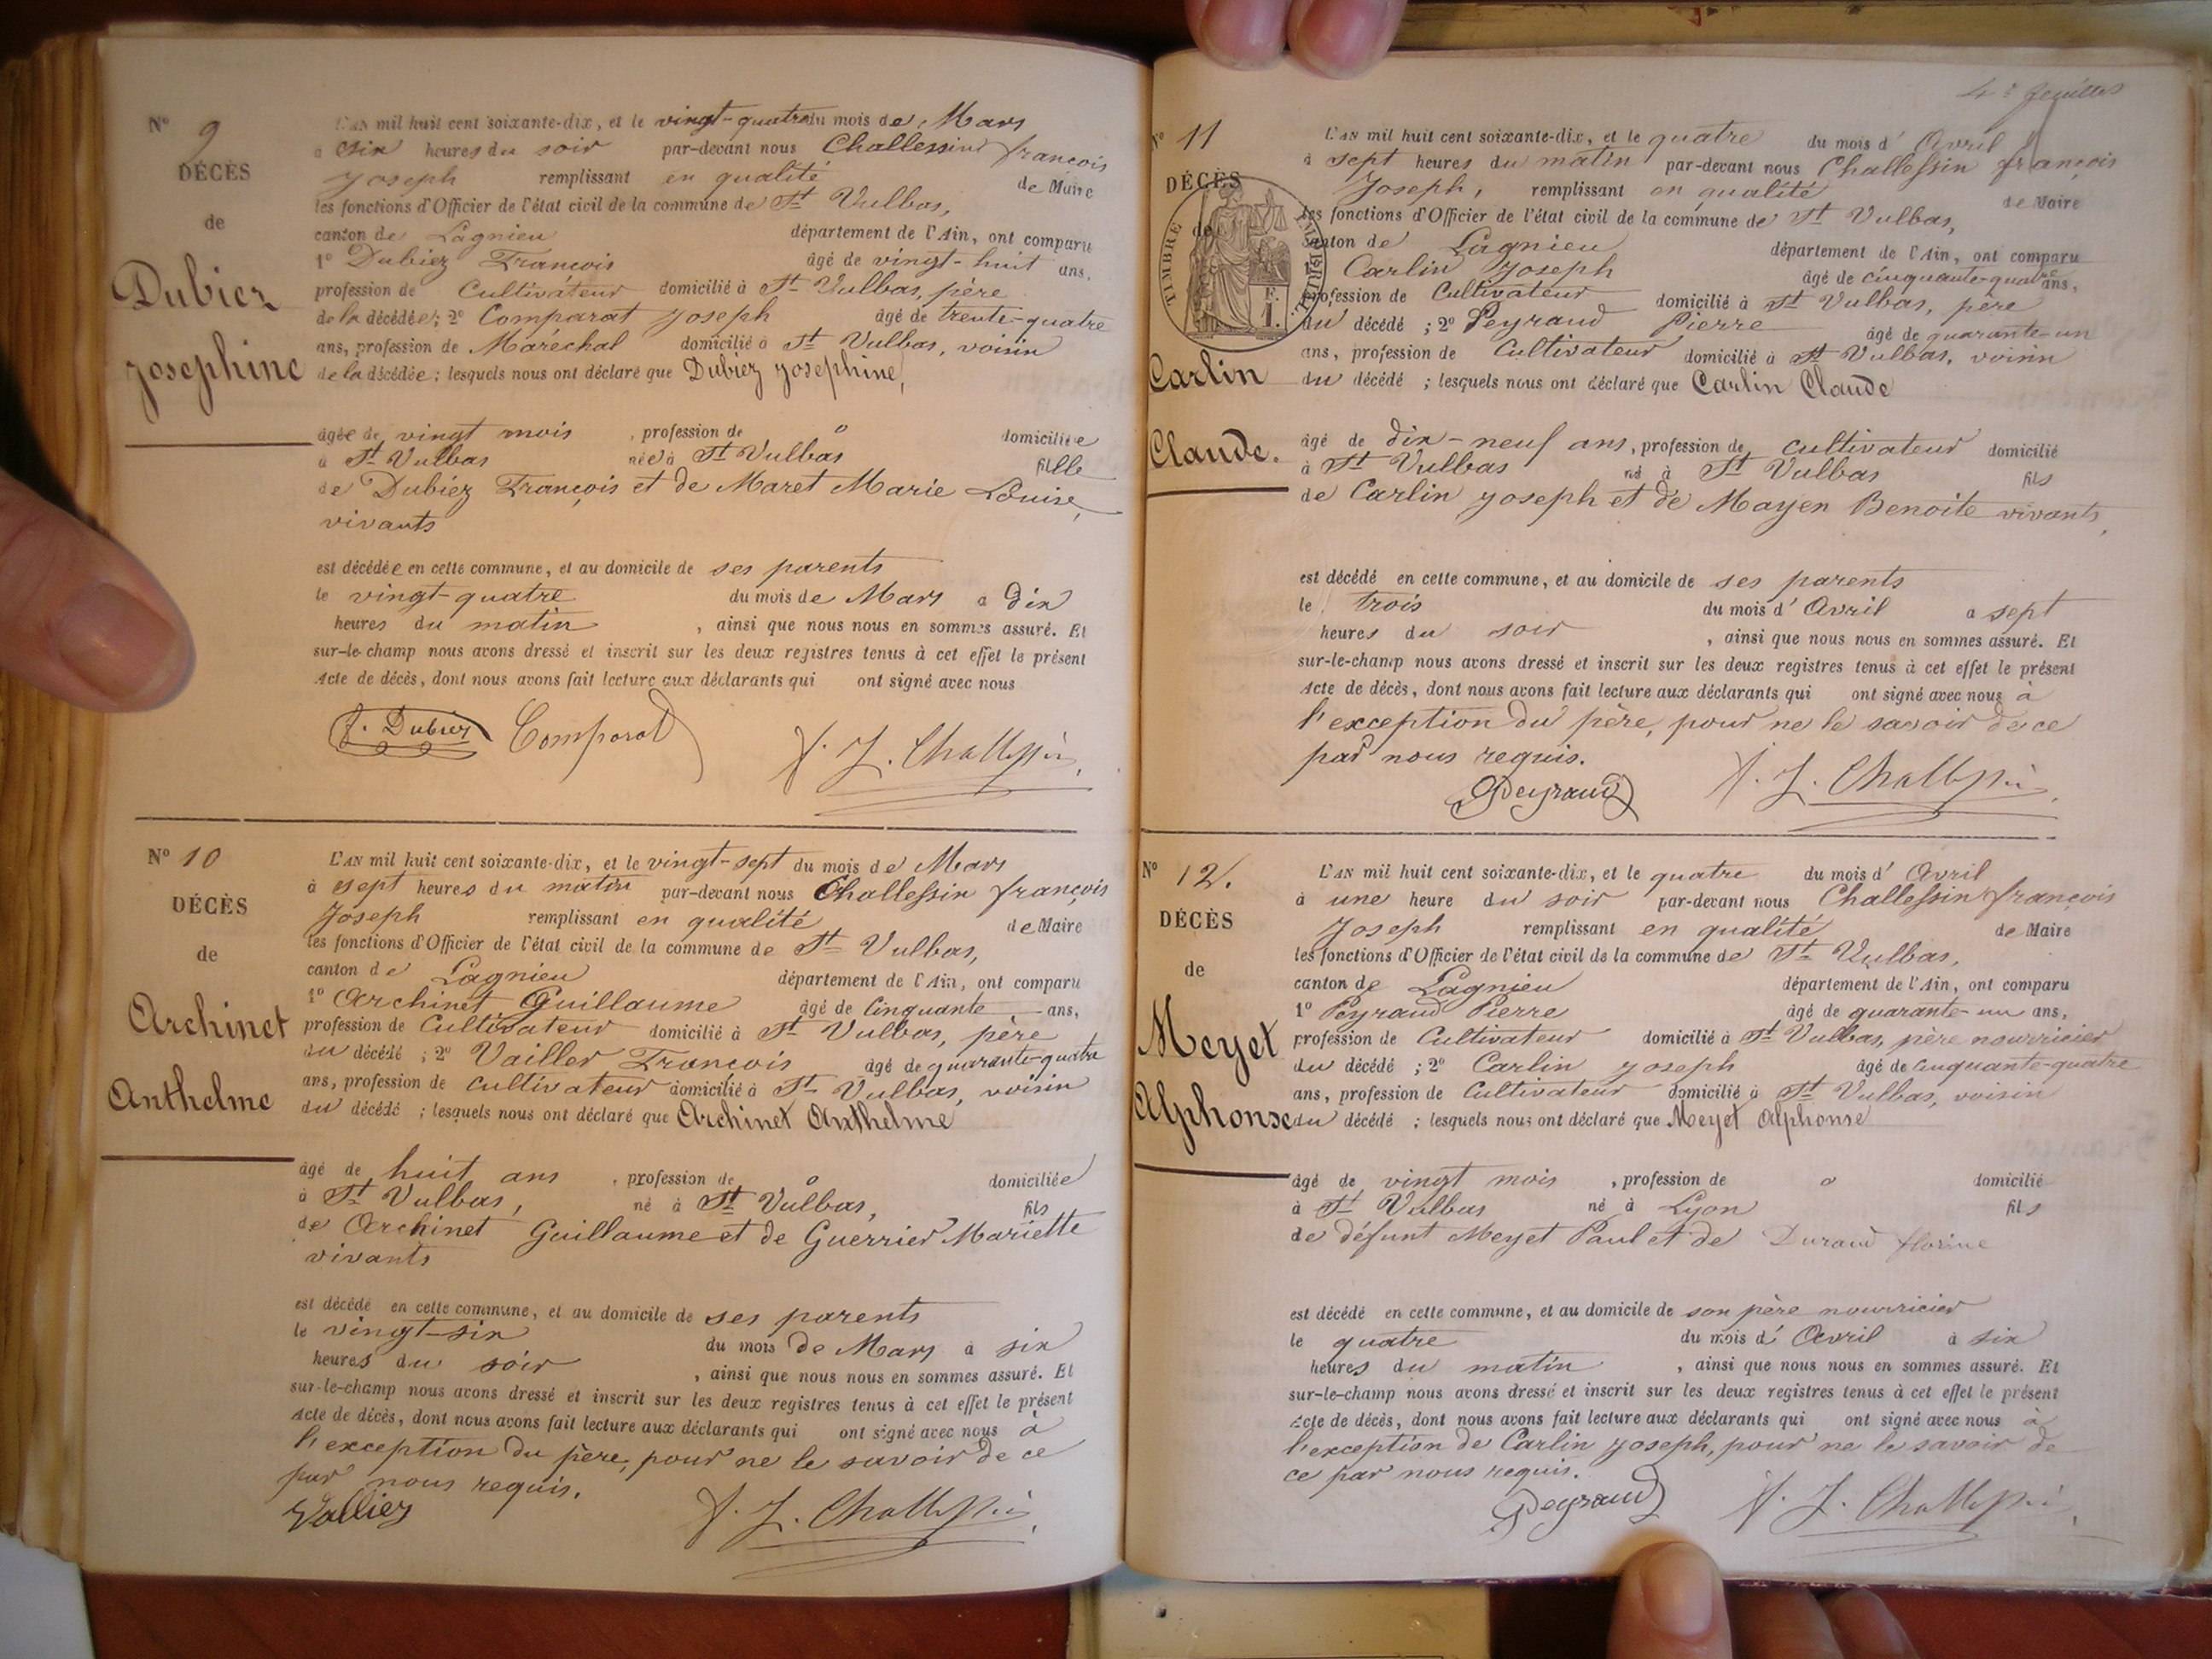 N° 9
DÉCÈS
de
Dubiez
Josephine
L'AN mil huit cent soixante-dix, et le vingt-quatre du mois de Mars
à six heures du soir par-devant nous Challessin françois
Joseph remplissant en qualité de Maire
les fonctions d'Officier de l'état civil de la commune de St Vulbas,
canton de Lagnieu département de l'Ain, ont comparu
1° Dubiez François âgé de vingt-huit ans,
profession de Cultivateur domicilié à St Vulbas, père
de la décédée; 2° Comparat Joseph âgé de trente-quatre
ans, profession de Maréchal domicilié à St Vulbas, voisin
de la décédée; lesquels nous ont déclaré que Dubiez Josephine,
âgée de vingt mois, profession de o domiciliée
à St Vulbas née à St Vulbas fille
de Dubiez François et de Maret Marie Louise,
vivants
est décédée en cette commune, et au domicile de ses parents
le vingt-quatre du mois de Mars à dix
heures du matin, ainsi que nous nous en sommes assuré. Et
sur-le-champ nous avons dressé et inscrit sur les deux registres tenus à cet effet le présent
Acte de décès, dont nous avons fait lecture aux déclarants qui ont signé avec nous
f. Dubiez Comparat f. J. Challessin
N° 10
DÉCÈS
de
Archinet
Anthelme
L'AN mil huit cent soixante-dix, et le vingt-sept du mois de Mars
à sept heures du matin par-devant nous Challessin françois
Joseph remplissant en qualité de Maire
les fonctions d'Officier de l'état civil de la commune de St Vulbas,
canton de Lagnieu département de l'Ain, ont comparu
1° Archinet Guillaume âgé de Cinquante ans,
profession de Cultivateur domicilié à St Vulbas, père
du décédé; 2° Vailler François âgé de quarante-quatre
ans, profession de cultivateur domicilié à St Vulbas, voisin
du décédé; lesquels nous ont déclaré que Archinet Anthelme
âgé de huit ans, profession de o domiciliée
à St Vulbas, né à St Vulbas, fils
de Archinet Guillaume et de Guerrier Mariette
vivants
est décédé en cette commune, et au domicile de ses parents
le vingt-six du mois de Mars à six
heures du soir, ainsi que nous nous en sommes assuré. Et
sur-le-champ nous avons dressé et inscrit sur les deux registres tenus à cet effet le présent
Acte de décès, dont nous avons fait lecture aux déclarants qui ont signé avec nous à
l'exception du père, pour ne le savoir de ce
par nous requis.
Vallier f. J. Challessin
4e feuillet
N° 11
DÉCÈS
de
TIMBRE IMPÉRIAL
Carlin
Claude.
L'AN mil huit cent soixante-dix, et le quatre du mois d'Avril
à sept heures du matin par-devant nous Challessin françois
Joseph, remplissant en qualité de Maire
les fonctions d'Officier de l'état civil de la commune de St Vulbas,
canton de Lagnieu département de l'Ain, ont comparu
Carlin Joseph âgé de cinquante-quatre ans,
profession de Cultivateur domicilié à St Vulbas, père
du décédé; 2° Peyraud Pierre âgé de quarante-un
ans, profession de Cultivateur domicilié à St Vulbas, voisin
du décédé; lesquels nous ont déclaré que Carlin Claude
âgé de dix-neuf ans, profession de cultivateur domicilié
à St Vulbas né à St Vulbas fils
de Carlin Joseph et de Mayen Benoite vivants,
est décédé en cette commune, et au domicile de ses parents
le trois du mois d'Avril à sept
heures du soir, ainsi que nous nous en sommes assuré. Et
sur-le-champ nous avons dressé et inscrit sur les deux registres tenus à cet effet le présent
Acte de décès, dont nous avons fait lecture aux déclarants qui ont signé avec nous à
l'exception du père, pour ne le savoir de ce
par nous requis.
Peyraud f. J. Challessin
N° 12.
DÉCÈS
de
Meyet
Alphonse
L'AN mil huit cent soixante-dix, et le quatre du mois d'Avril
à une heure du soir par-devant nous Challessin françois
Joseph remplissant en qualité de Maire
les fonctions d'Officier de l'état civil de la commune de St Vulbas,
canton de Lagnieu département de l'Ain, ont comparu
1° Peyraud Pierre âgé de quarante-un ans,
profession de Cultivateur domicilié à St Vulbas, père nourricier
du décédé; 2° Carlin Joseph âgé de cinquante-quatre
ans, profession de Cultivateur domicilié à St Vulbas, voisin
du décédé; lesquels nous ont déclaré que Meyet Alphonse
âgé de vingt mois, profession de o domicilié
à St Vulbas né à Lyon fils
de défunt Meyet Paul et de Durand florine
est décédé en cette commune, et au domicile de son père nourricier
le quatre du mois d'Avril à six
heures du matin, ainsi que nous nous en sommes assuré. Et
sur-le-champ nous avons dressé et inscrit sur les deux registres tenus à cet effet le présent
Acte de décès, dont nous avons fait lecture aux déclarants qui ont signé avec nous à
l'exception de Carlin Joseph, pour ne le savoir de
ce par nous requis.
Peyraud f. J. Challessin